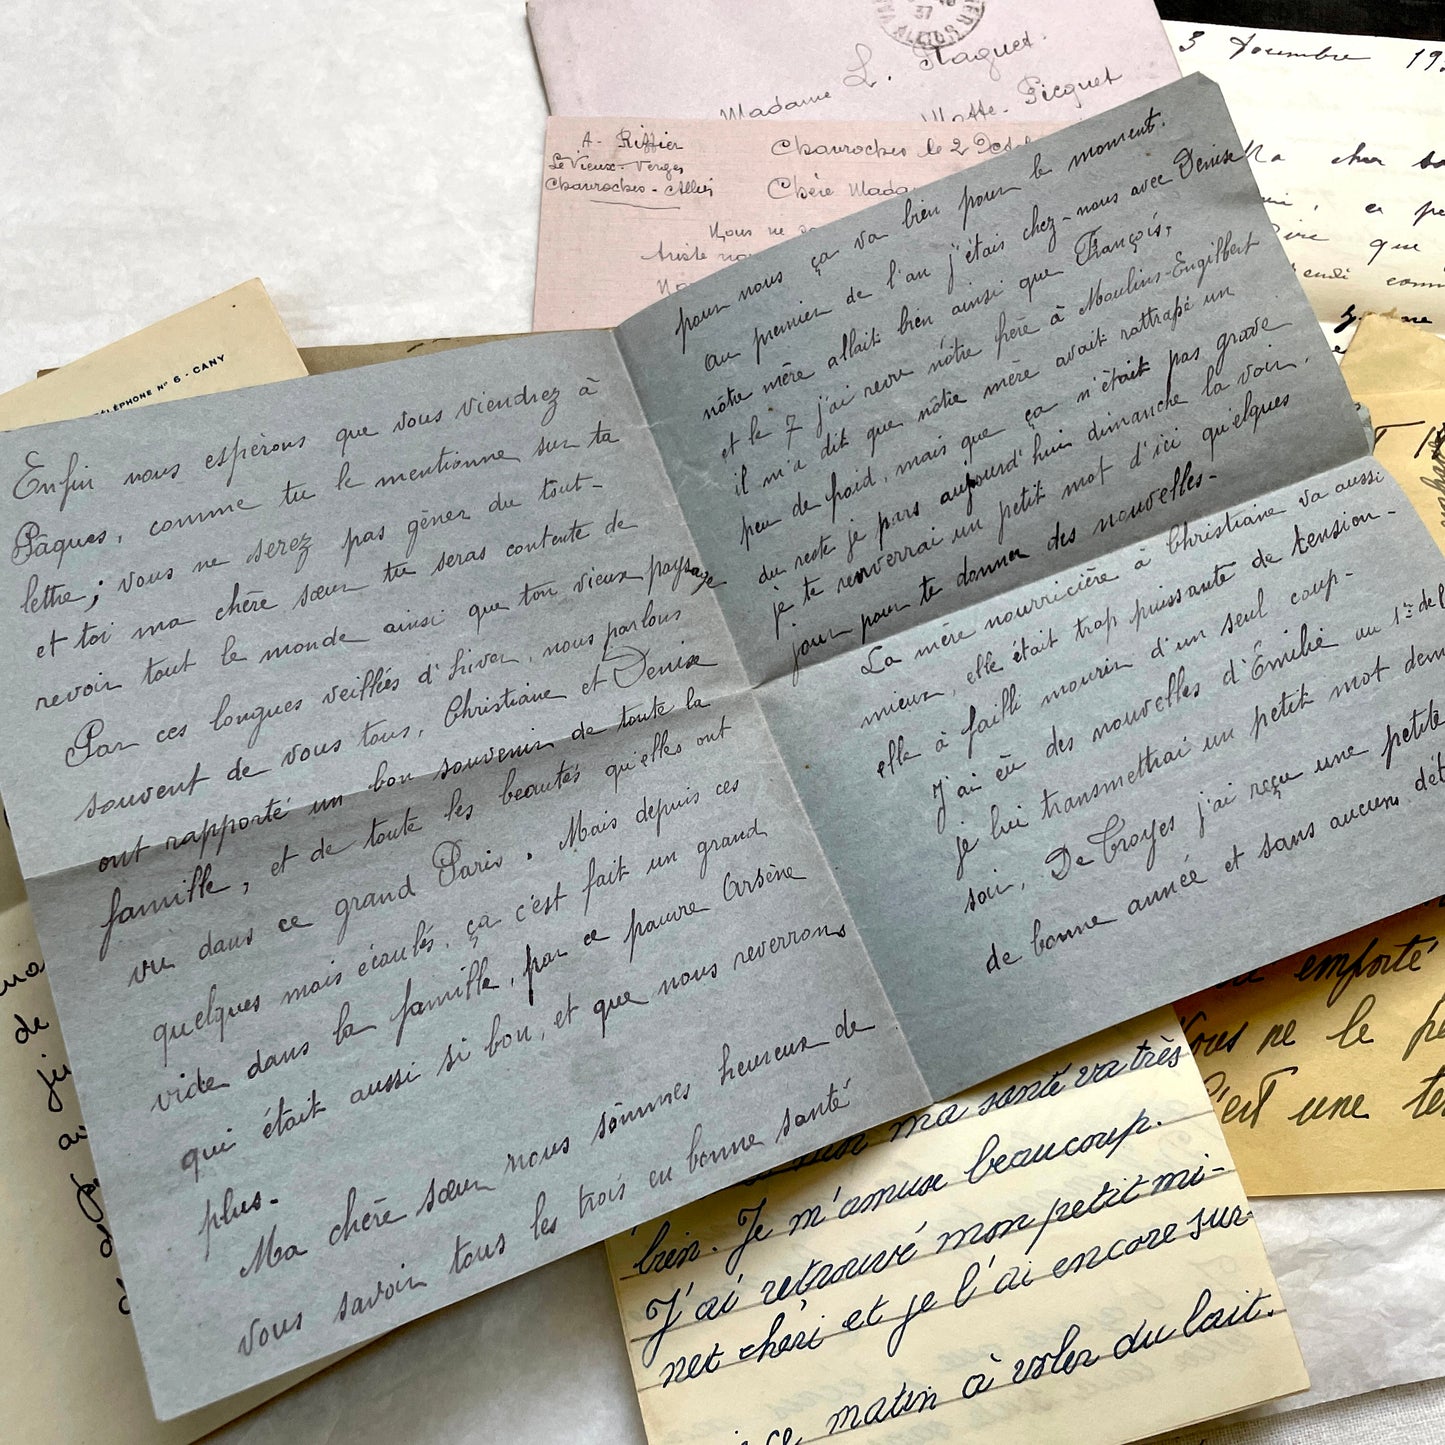 37
ALLIER
Madame L. Flaquet.
Motte-Picquet
A- Riffier
Le Vieux-Verger
Chavroches-Allier
Chavroches le 2
Chère Mada
Nous ne
triste
3 19
Ma cher
que
TÉLÉPHONE N° 6 - CANY
Enfin nous espérons que vous viendrez à
Pâques, comme tu le mentionne sur ta
lettre; vous ne serez pas gêner du tout-
et toi ma chère sœur tu seras contente de
revoir tout le monde ainsi que ton vieux paysage
Par ces longues veillées d'hiver, nous parlons
souvent de vous tous, Christiane et Denise
ont rapporté un bon souvenir de toute la
famille, et de toute les beautés qu'elles ont
vu dans ce grand Paris. Mais depuis ces
quelques mois écoulés, ça c'est fait un grand
vide dans la famille, par ce pauvre Arsène
qui était aussi si bon, et que nous reverrons
plus-
Ma chère sœur nous sommes heureux de
vous savoir tous les trois en bonne santé
pour nous ça va bien pour le moment.
au premier de l'an j'étais chez-nous avec Denise
nôtre mère allait bien ainsi que François,
et le 7 j'ai revu nôtre frère à Moulins-Engilbert
il m'a dit que nôtre mère avait rattrapé un
peu de froid, mais que ça n'était pas grave
du reste je pars aujourd'hui dimanche la voir.
je te renverrai un petit mot d'ici quelques
jour pour te donner des nouvelles-
La mère nourricière à Christiane va aussi
mieux, elle était trop puissante de tension-
elle à failli mourir d'un seul coup-
J'ai eu des nouvelles d'Émilie au 1er de l
je lui transmettrai un petit mot dem
soir, De Troyes j'ai reçu une petite
de bonne année et sans aucuns dét
emporté
Vous ne le pe
C'est une te
bien ma santé va très
bien. Je m'amuse beaucoup.
J'ai retrouvé mon petit mi-
net chéri et je l'ai encore sur-
ce matin à voler du lait.
de